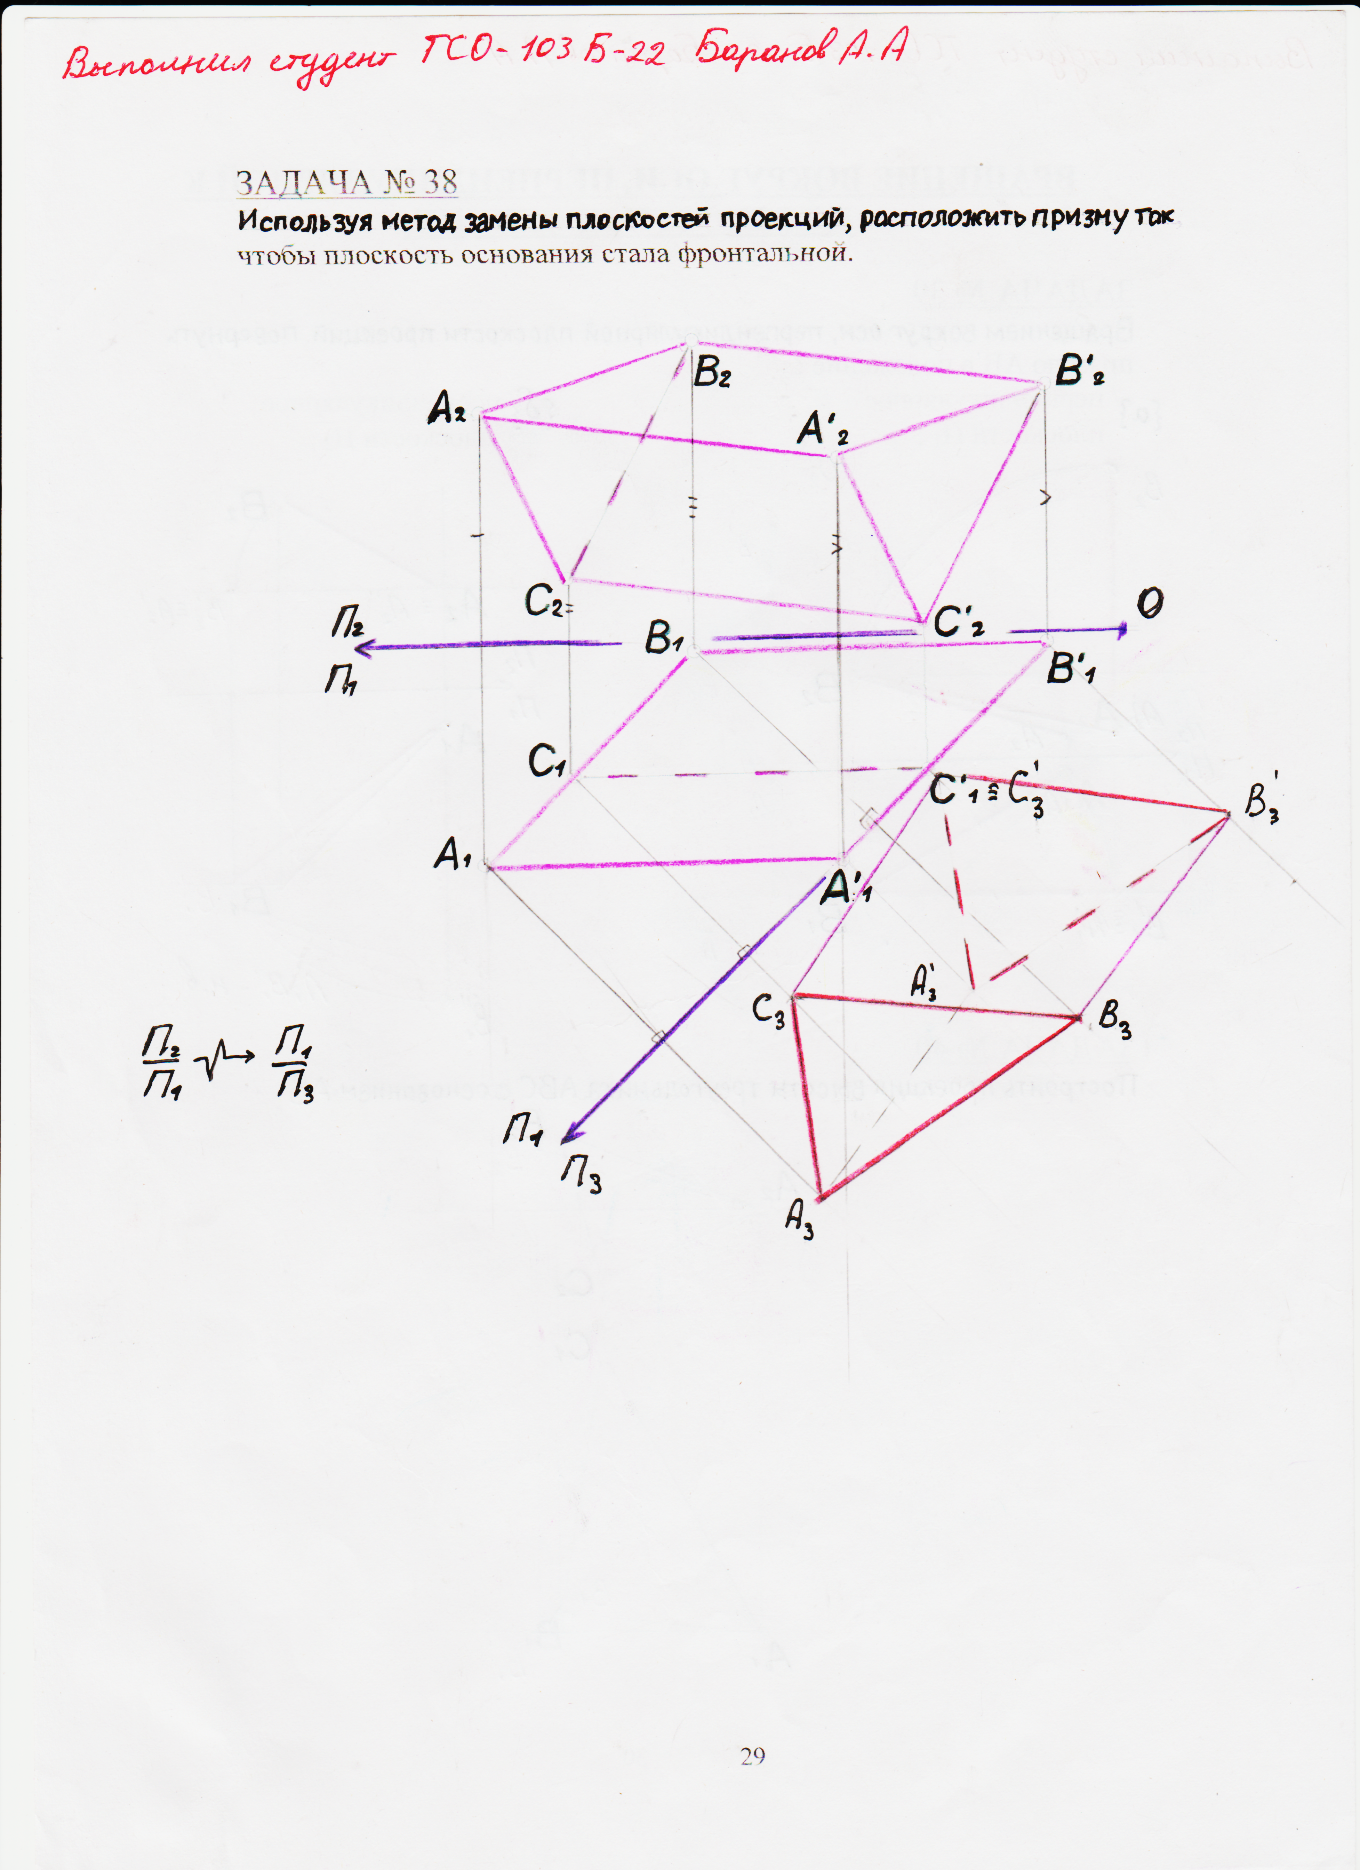 Выполнил студент ТСО-103Б-22 Баранов А.А
ЗАДАЧА № 38
Используя метод замены плоскостей проекций, расположить призму так
чтобы плоскость основания стала фронтальной.
B₂
B'₂
A₂
A'₂
C₂
O
П₂
B₁
C'₂
П₁
B'₁
C₁
C'₁≡C'₃
B'₃
A₁
A'₁
A'₃
C₃
B₃
П₂/П₁ → П₁/П₃
П₁
П₃
A₃
29